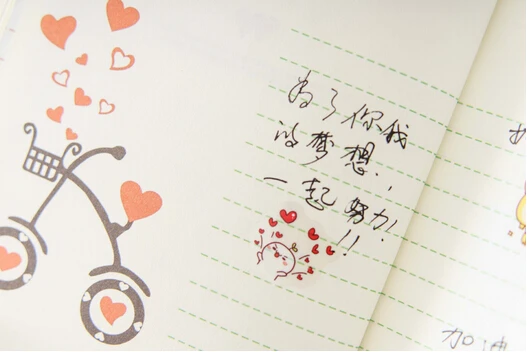 为了你我
的梦想,
一起努力!!
加油